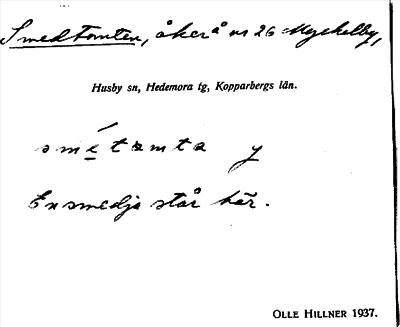 Smedtomten, åker å nr 26 Myckelby,
Husby sn, Hedemora tg, Kopparbergs län.
smétamta y
En smedja står här.
OLLE HILLNER 1937.